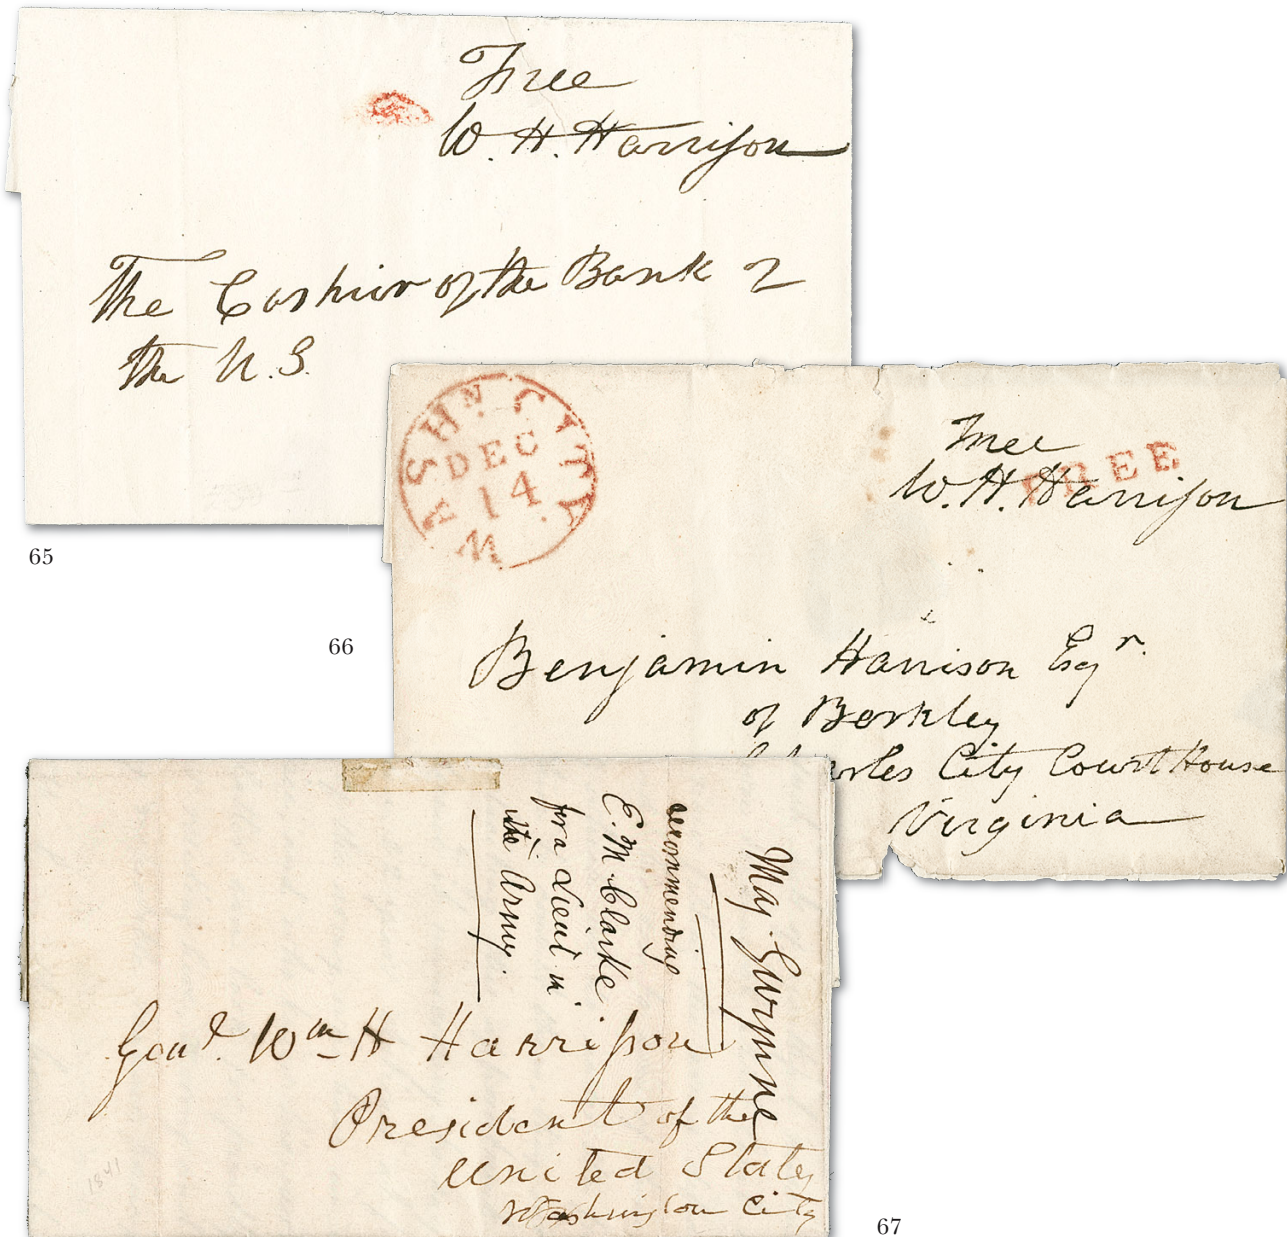 Free
W. H. Harrison
The Cashier of the Bank of
the U.S.
65
WASHN. CITY.
DEC
14
Free
FREE
W. H. Harrison
66
Benjamin Harrison Esqr.
of Berkley
Charles City Court House
Virginia
May. Gwynne
recommending
E. M. Clarke
for a Lieut in
the Army.
Genl. Wm H Harrison
President of the
United States
Washington City
1841
67